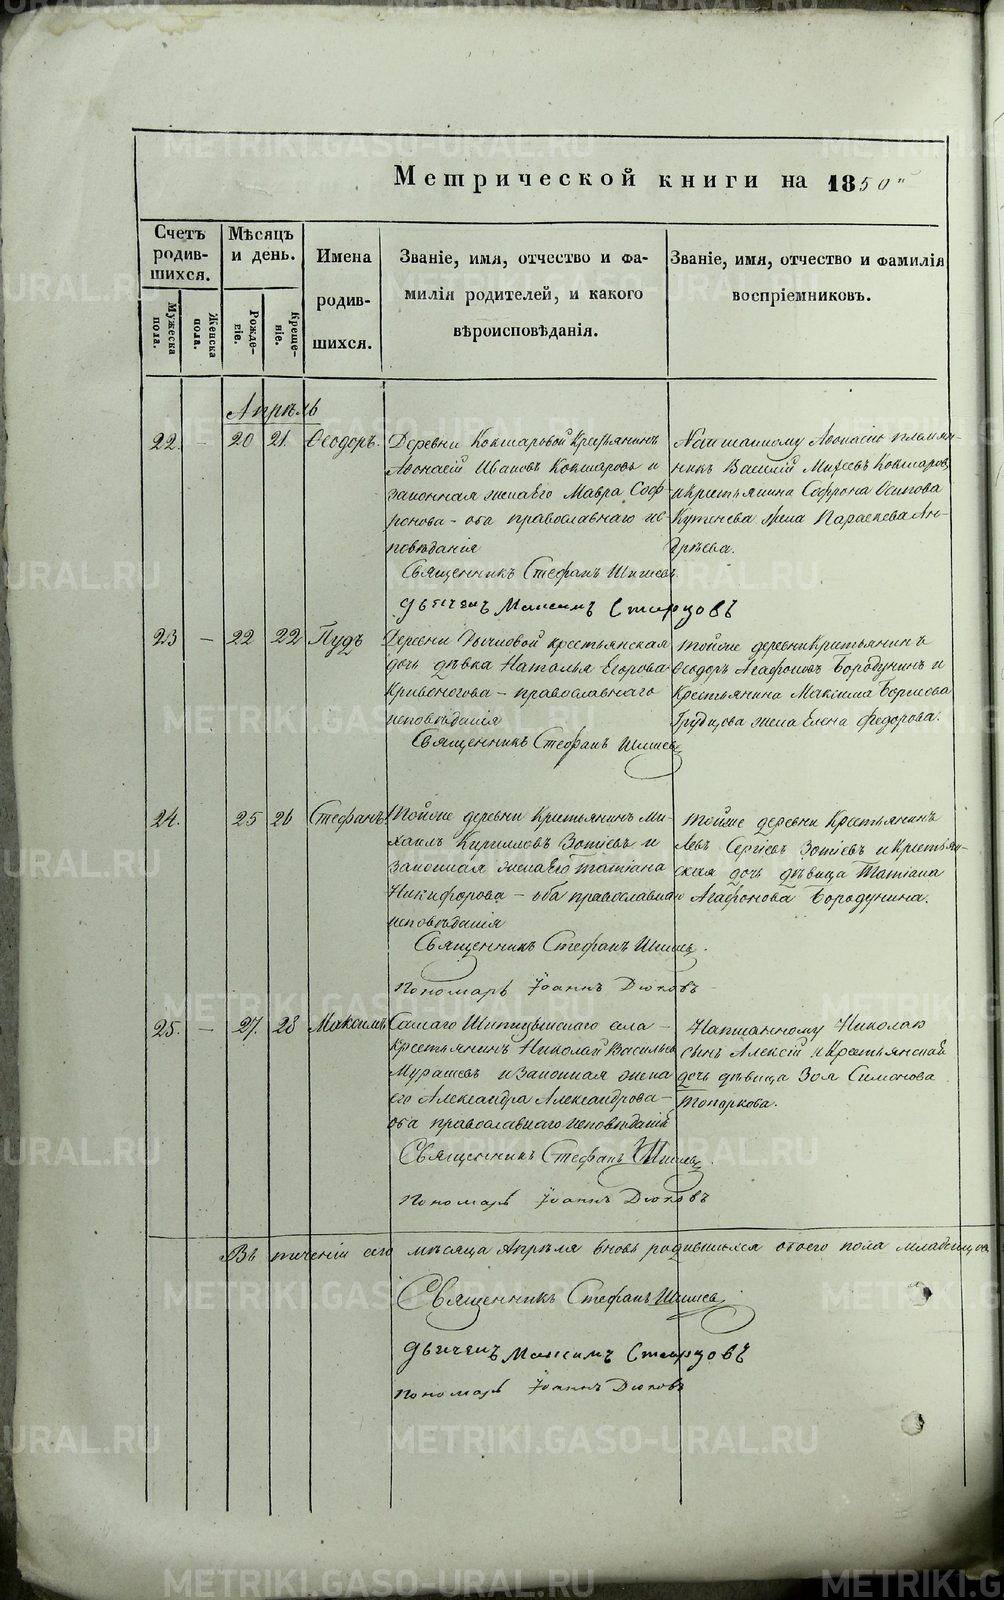 Метрической книги на 1850й
Счетъ родив-шихся.
Мужеска пола.
Женска пола.
Мѣсяцъ и день.
Рожде-ніе.
Креще-ніе.
Имена родив-шихся.
Званіе, имя, отчество и фа-
милія родителей, и какого
вѣроисповѣданія.
Званіе, имя, отчество и фамилія
воспріемниковъ.
Апрѣль
22. – 20 21. Ѳеодоръ.
Деревни Кокшаровой Крестьянинъ
Аѳонасій Ивановъ Кокшаровъ и
законная жена его Мавра Соф-
ронова – оба православнаго ис-
повѣданія
Священникъ Стефанъ Шишевъ.
Дьячекъ Максимъ Старцовъ
Написанному Аѳонасію племян-
никъ Василій Михеевъ Кокшаровъ
и крестьянина Софрона Осипова
Кутенева жена Параскева Ан-
дрѣева.
23 – 22 22 Пудъ
Деревни крестьянская
дочь дѣвка Наталья Егорова
Кривоногова – православнаго
исповѣданія
Священникъ Стефанъ Шишевъ
тойже деревни Крестьянинъ
Ѳеодоръ Агафоновъ Бородунинъ и
Крестьянина Максима Борисова
жена Елена Федорова.
24. 25 26 Стефанъ
Тойже деревни Крестьянинъ Ми-
хаилъ Кириловъ Зотѣевъ и
законная жена его Татіана
Никифорова – оба православнаго
исповѣданія
Священникъ Стефанъ Шишевъ.
Пономарь Іоаннъ Дюковъ
тойже деревни Крестьянинъ
Левъ Сергѣевъ Зотѣевъ и крестьян-
ская дочь дѣвица Татіана
Агафонова Бородунина.
25. – 27. 28 Максимъ
Самаго Шипицынскаго села –
Крестьянинъ Николай Васильевъ
Мурашевъ и законная жена
его Александра Александрова –
оба православнаго исповѣданія
Священникъ Стефанъ Шишевъ.
Пономарь Іоаннъ Дюковъ
Написанному Николаю
сынъ Алексій и Крестьянская
дочь дѣвица Зоя Симонова
Топоркова.
Въ теченіи сего мѣсяца Апрѣля вновь родившихся обоего пола младенцовъ
Священникъ Стефанъ Шишевъ
Дьячекъ Максимъ Старцовъ
Пономарь Іоаннъ Дюковъ
METRIKI.GASO-URAL.RU